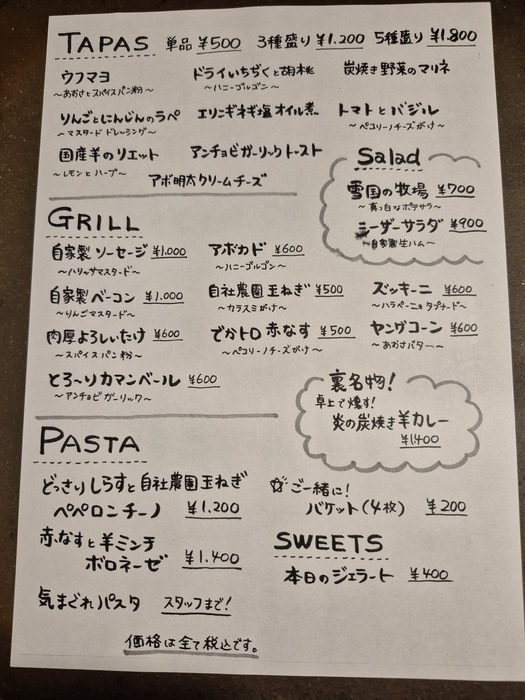 TAPAS 単品 ¥500 3種盛り ¥1.200 5種盛り ¥1.800
ウフマヨ
～あおさとスパイスパン粉～
ドライいちぢくと胡桃
～ハニーゴルゴン～
炭焼き野菜のマリネ
りんごとにんじんのラペ
～マスタードドレーシング～
エリンギネギ塩オイル煮
トマトとバジル
～ペコリーノチーズがけ～
国産羊のリエット
～レモンとハーブ～
アンチョビガーリックトースト
アボ明太クリームチーズ
Salad
雪国の牧場 ¥700
～真っ白なポテサラ～
シーザーサラダ ¥900
～自家製生ハム～
GRILL
自家製ソーセージ ¥1.000
～ハリッサマスタード～
アボカド ¥600
～ハニーゴルゴン～
自家製ベーコン ¥1.000
～りんごマスタード～
自社農園玉ねぎ ¥500
～カラスミがけ～
ズッキーニ ¥600
～ハラペーニョタプナード～
肉厚よろしいたけ ¥600
～スパイスパン粉～
でかトロ赤なす ¥500
～ペコリーノチーズがけ～
ヤングコーン ¥600
～あおさバター～
とろ～りカマンベール ¥600
～アンチョビガーリック～
裏名物!
卓上で燻す!
炎の炭焼き羊カレー
¥1,400
PASTA
どっさりしらすと自社農園玉ねぎ
ペペロンチーノ ¥1.200
赤なすと羊ミンチ
ボロネーゼ ¥1.400
気まぐれパスタ スタッフまで!
ご一緒に!
バケット(4枚) ¥200
SWEETS
本日のジェラート ¥400
価格は全て税込です。